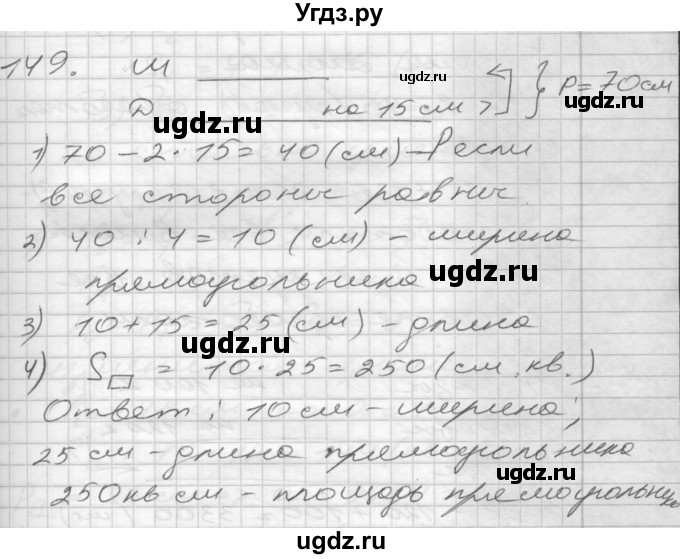 Угдз.ру
149. Ш
Д на 15 см > } P = 70 см
ugdz.ru ugdz.ru
1) 70 - 2 · 15 = 40 (см) - P если
все стороны равны
ugdz.ru
2) 40 : 4 = 10 (см) - ширина
прямоугольника ugdz.ru
3) 10 + 15 = 25 (см) - длина
ugdz.ru
4) S□ = 10 · 25 = 250 (см. кв.)
Ответ: 10 см - ширина;
ugdz.ru
25 см - длина прямоугольника
250 кв см - площадь прямоугольника
ugdz.ru ugdz.ru